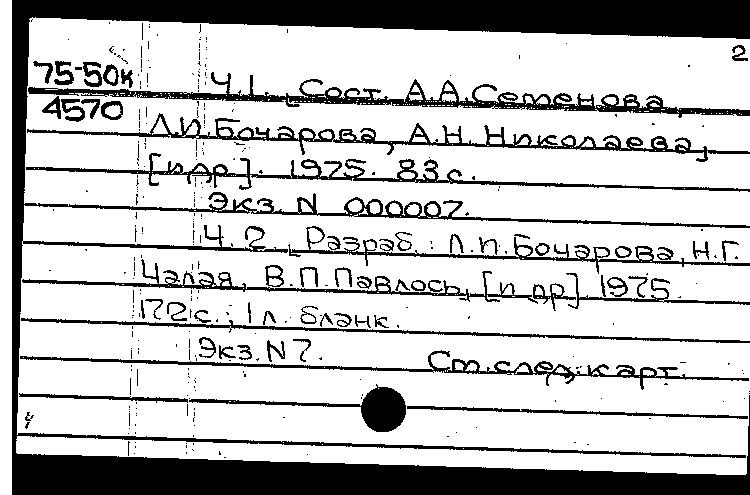 2
75-50к Ч.1. [Сост. А.А.Семенова,
4570 Л.И.Бочарова, А.Н.Николаева,]
[и др]. 1975. 83с.
Экз. N 000007.
Ч. 2. [Разраб.: Л.И.Бочарова, Н.Г.
Чалая, В.П.Павлось, [и др] 1975.
172с.; 1л. бланк.
Экз. N 7. См.след.карт.